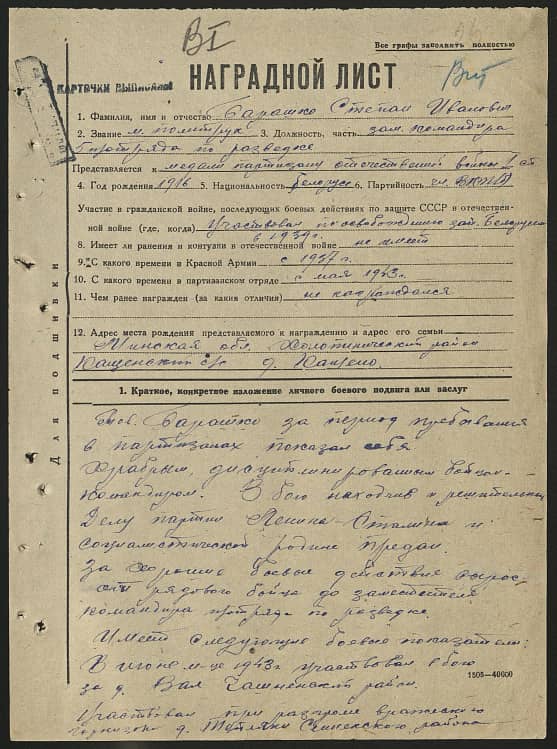 ВІ
Все графы заполнять полностью
КАРТОЧКИ ВЫПИСАНЫ
НАГРАДНОЙ ЛИСТ
1. Фамилия, имя и отчество Барашко Степан Иванович
2. Звание м. политрук 3. Должность, часть зам. командира
по разведке
Представляется к медали партизану отечественной войны I ст
4. Год рождения 1916 5. Национальность белорус 6. Партийность чл. ВКП(б)
Участие в гражданской войне, последующих боевых действиях по защите СССР в отечествен-
ной войне (где, когда) Участвовал по освобождению зап. Белорусси
в 1939 г.
8. Имеет ли ранения и контузии в отечественной войне не имеет
9. С какого времени в Красной Армии с 1937 г.
10. С какого времени в партизанском отряде с мая 1943 г.
11. Чем ранее награжден (за какия отличия) не награждался
12. Адрес места рождения представляемого к награждению и адрес его семьи
Минская обл. Холопиничский район
с/с д.
Для подшивки
1. Краткое, конкретное изложение личного боевого подвига или заслуг
Тов. Барашко за период пребывания
в партизанах показал себя
храбрым, дисциплинированным бойцом-
командиром. В бою находчив и решителен
Делу партии Ленина-Сталина и
социалистической родине предан.
За хорошие боевые действия вырос
от рядового бойца до заместителя
командира по разведке.
Имеет следующие боевые показатели:
В июне м-це 1943 г участвовал в бою
за д. Вал Чашненский район.
1505—40000
Участвовал при разгроме вражеского
гарнизона д. Сенненского района